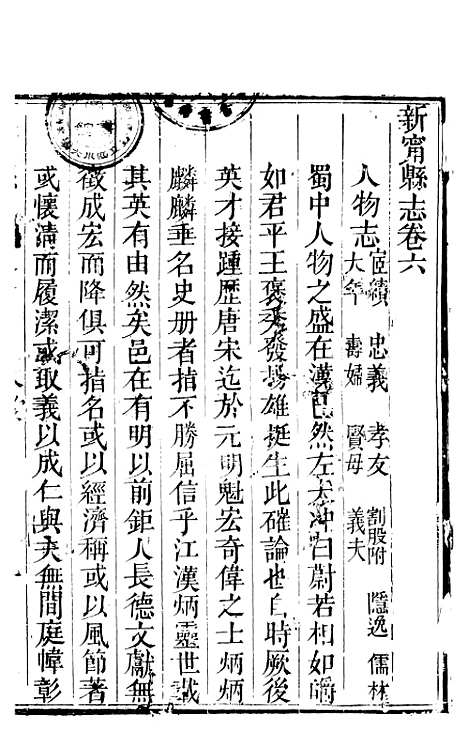 新寗縣志卷六
人物志 宦績 忠義 孝友 割股附 隱逸 儒林
大年 壽婦 賢母 義夫
蜀中人物之盛在漢已然左太沖曰蔚若相如皭
如君平王褒秀發揚雄挺生此確論也自時厥後
英才接踵歷唐宋迄於元明魁宏奇偉之士炳炳
麟麟垂名史册者指不勝屈信乎江漢炳靈世載
其英有由然矣邑在有明以前鉅人長德文獻無
徵成宏而降俱可指名或以經濟稱或以風節著
或懷清而履潔或取義以成仁與夫無間庭幃彰